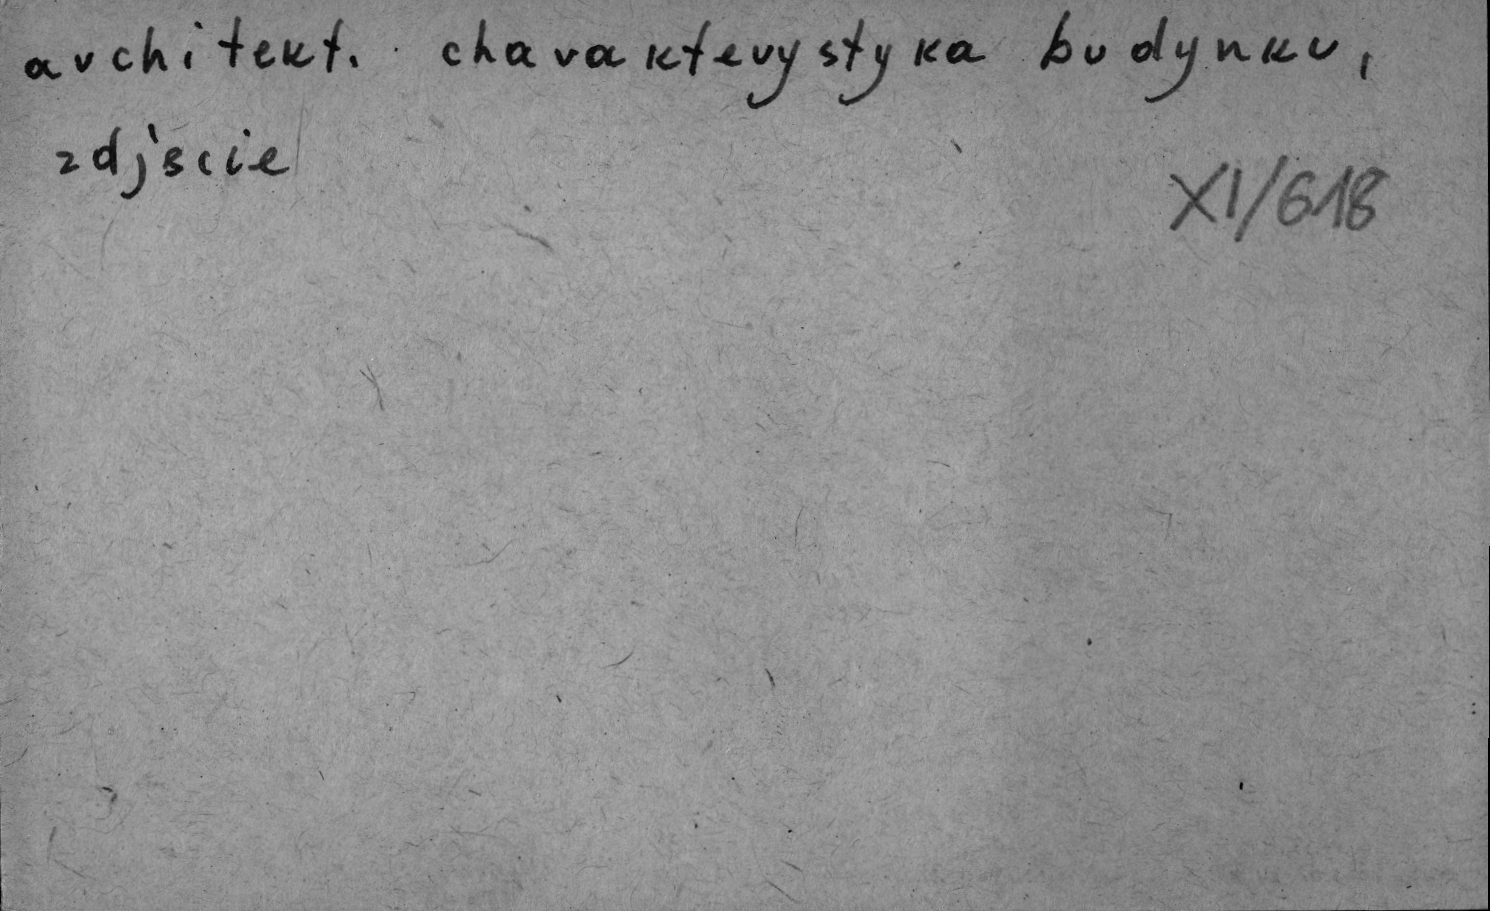 architekt. charakterystyka budynku,
zdjście
XI/618